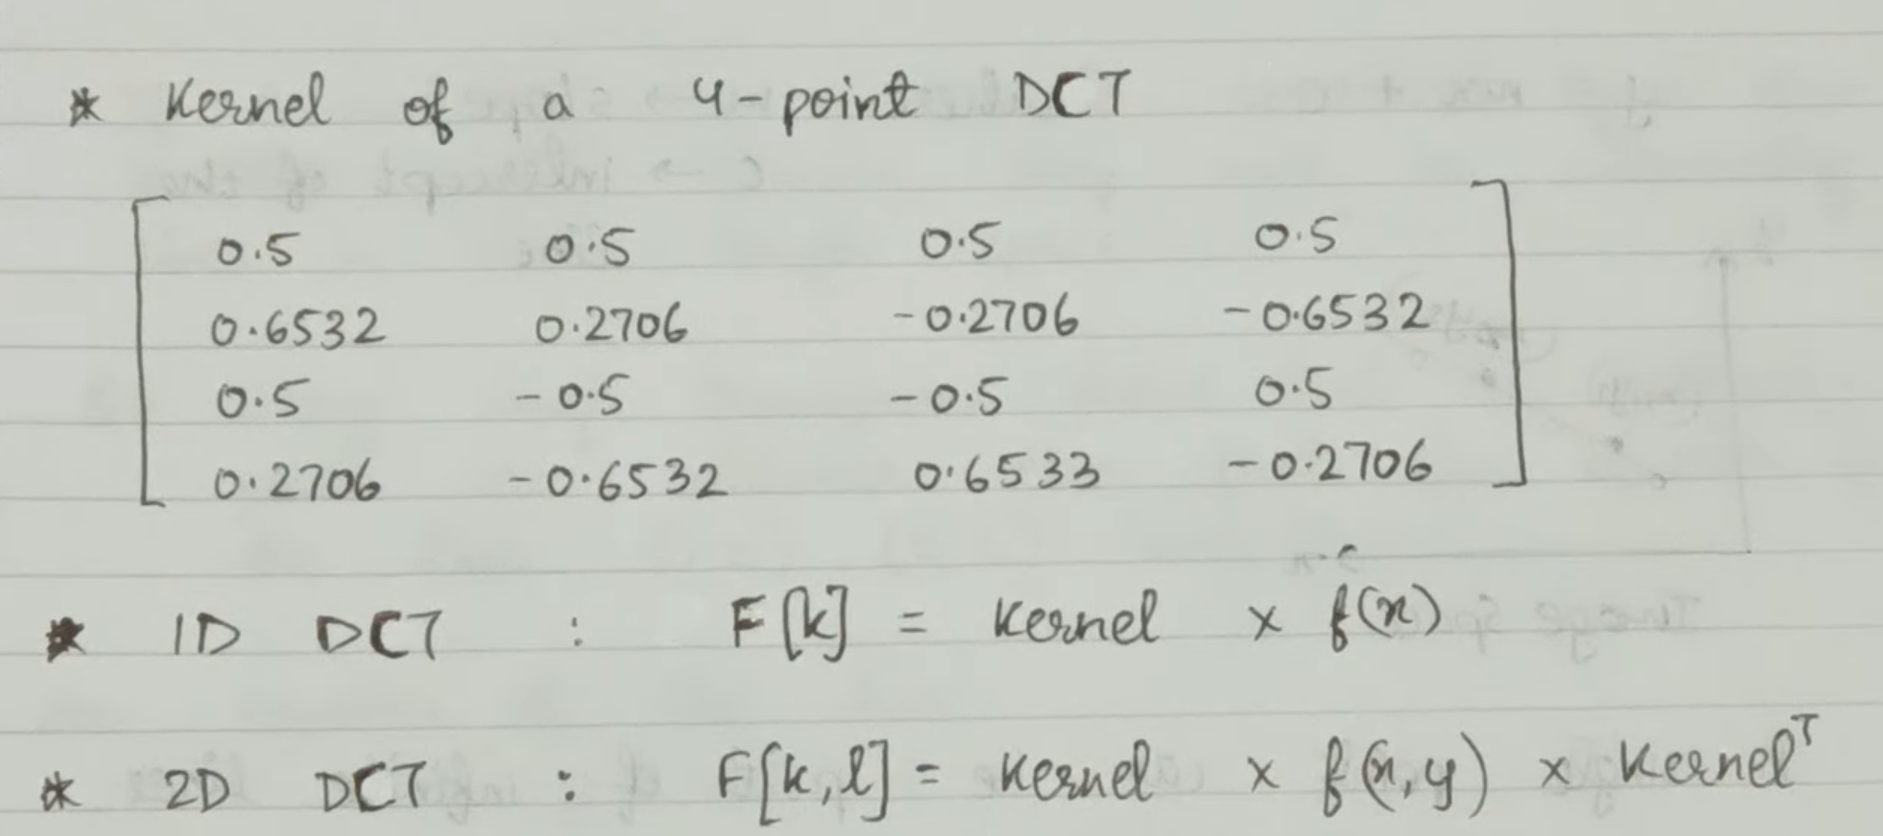 * Kernel of a 4-point DCT
0.5 0.5 0.5 0.5
0.6532 0.2706 -0.2706 -0.6532
0.5 -0.5 -0.5 0.5
0.2706 -0.6532 0.6533 -0.2706
* 1D DCT : F[k] = Kernel x f(x)
* 2D DCT : F[k,l] = Kernel x f(x,y) x Kernelᵀ